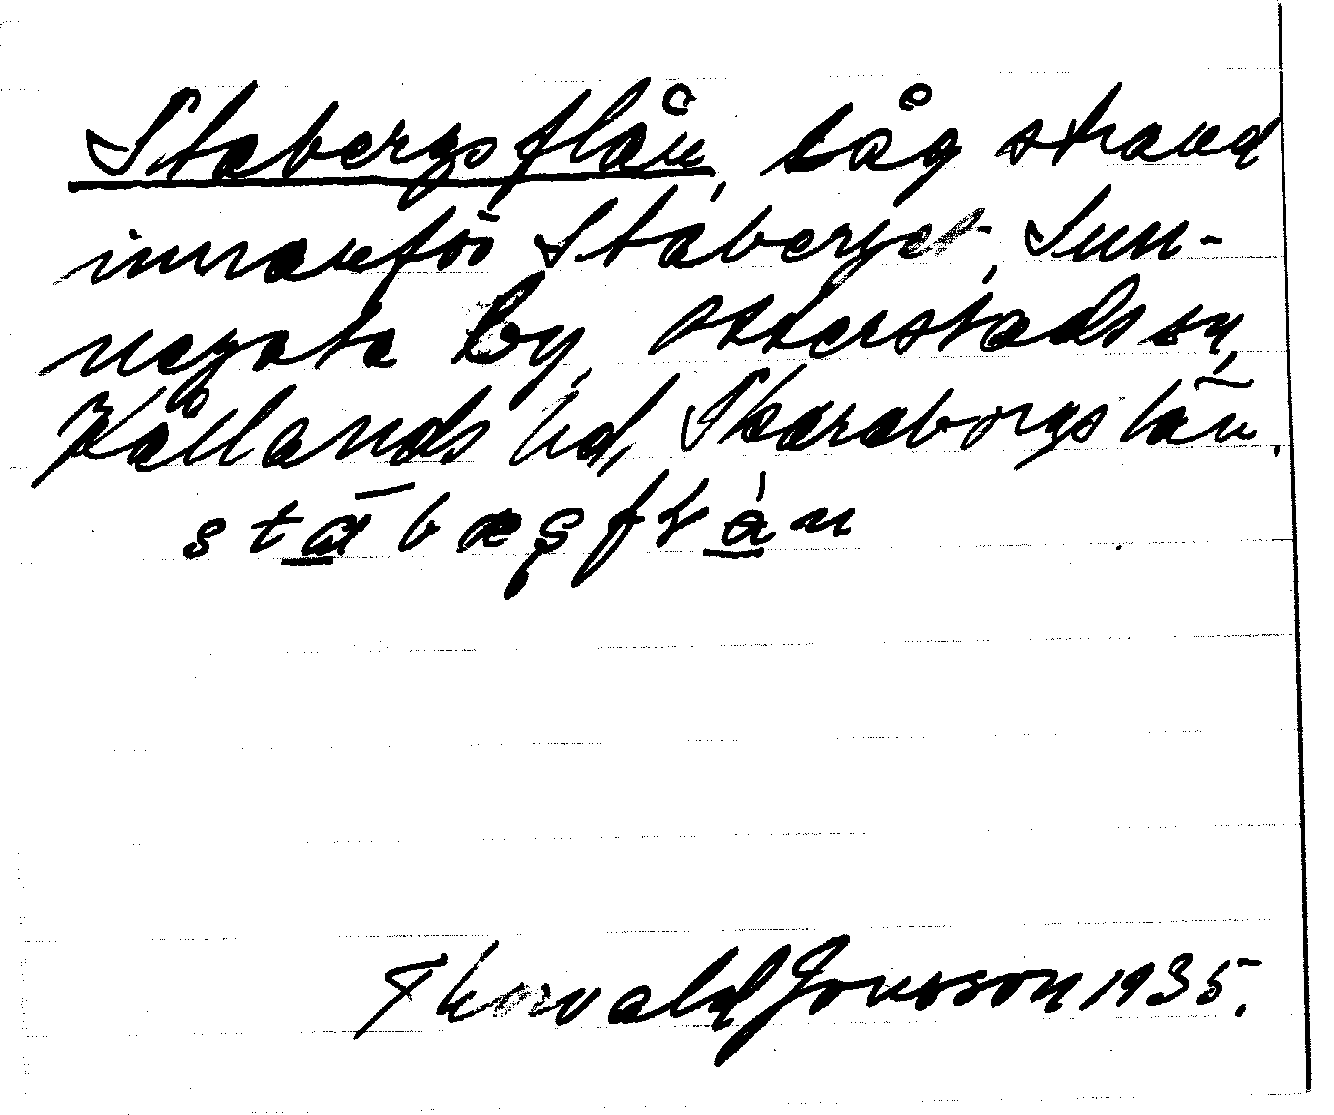 Stabergsflån, låg strand
innanför Staberget, Sun-
nersta by, Otterstads sn,
Kållands hd, Skaraborgs län.
Thorvald Jonsson 1935.